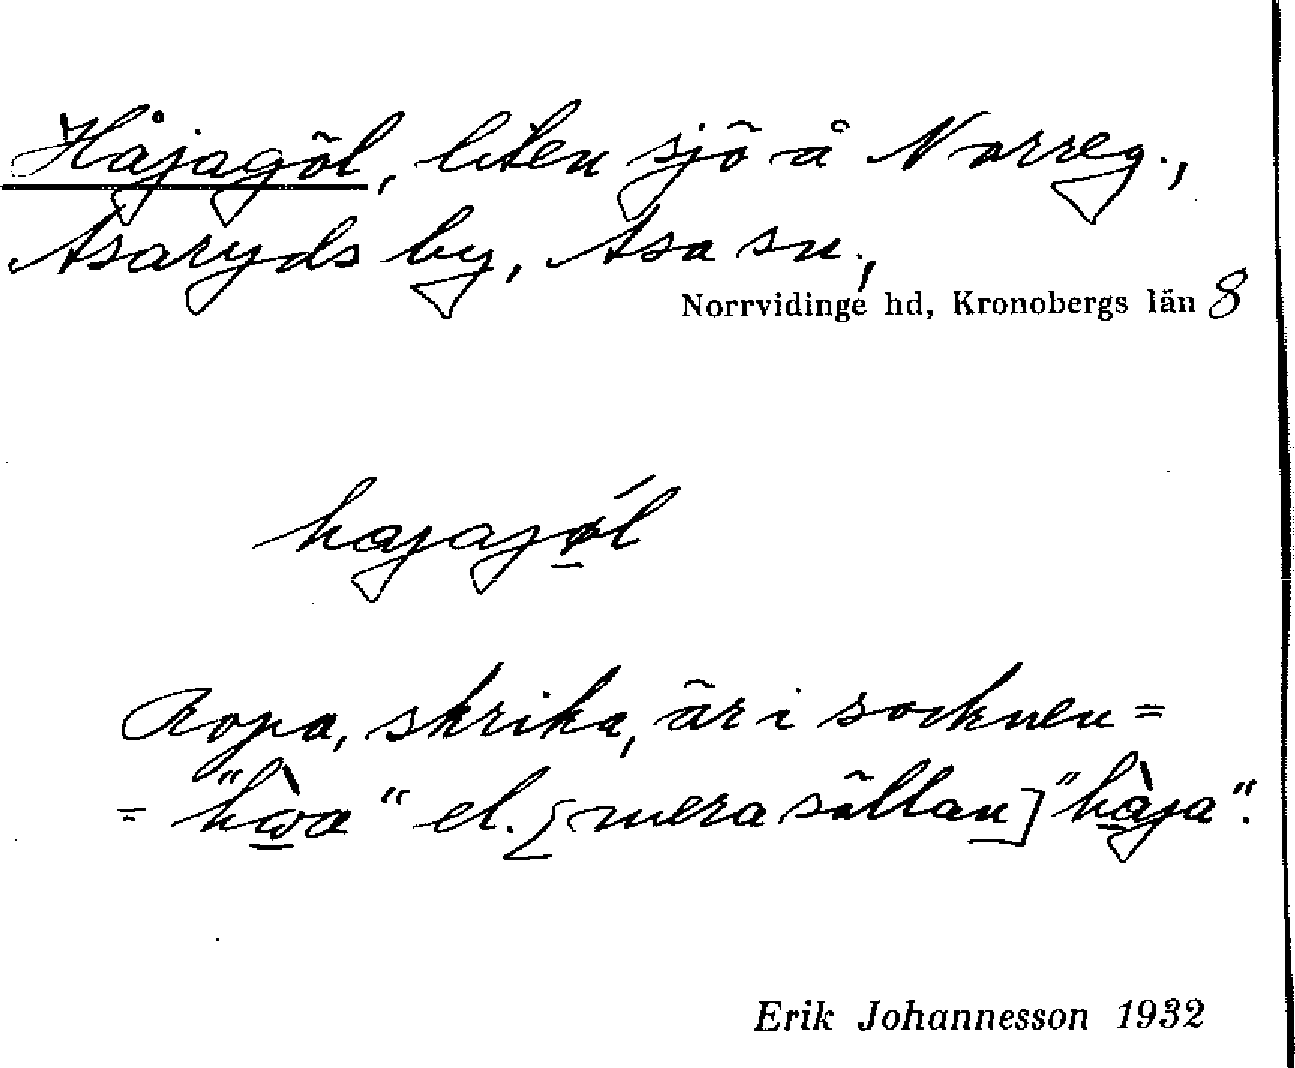 Håjagöl, liten sjö å Norreg.,
Asaryds by, Asa sn.,
Norrvidinge hd, Kronobergs län 8
hajajøl
Ropa, skrika, är i socknen =
= "hwa" el. [mera sällan] "hàja".
Erik Johannesson 1932